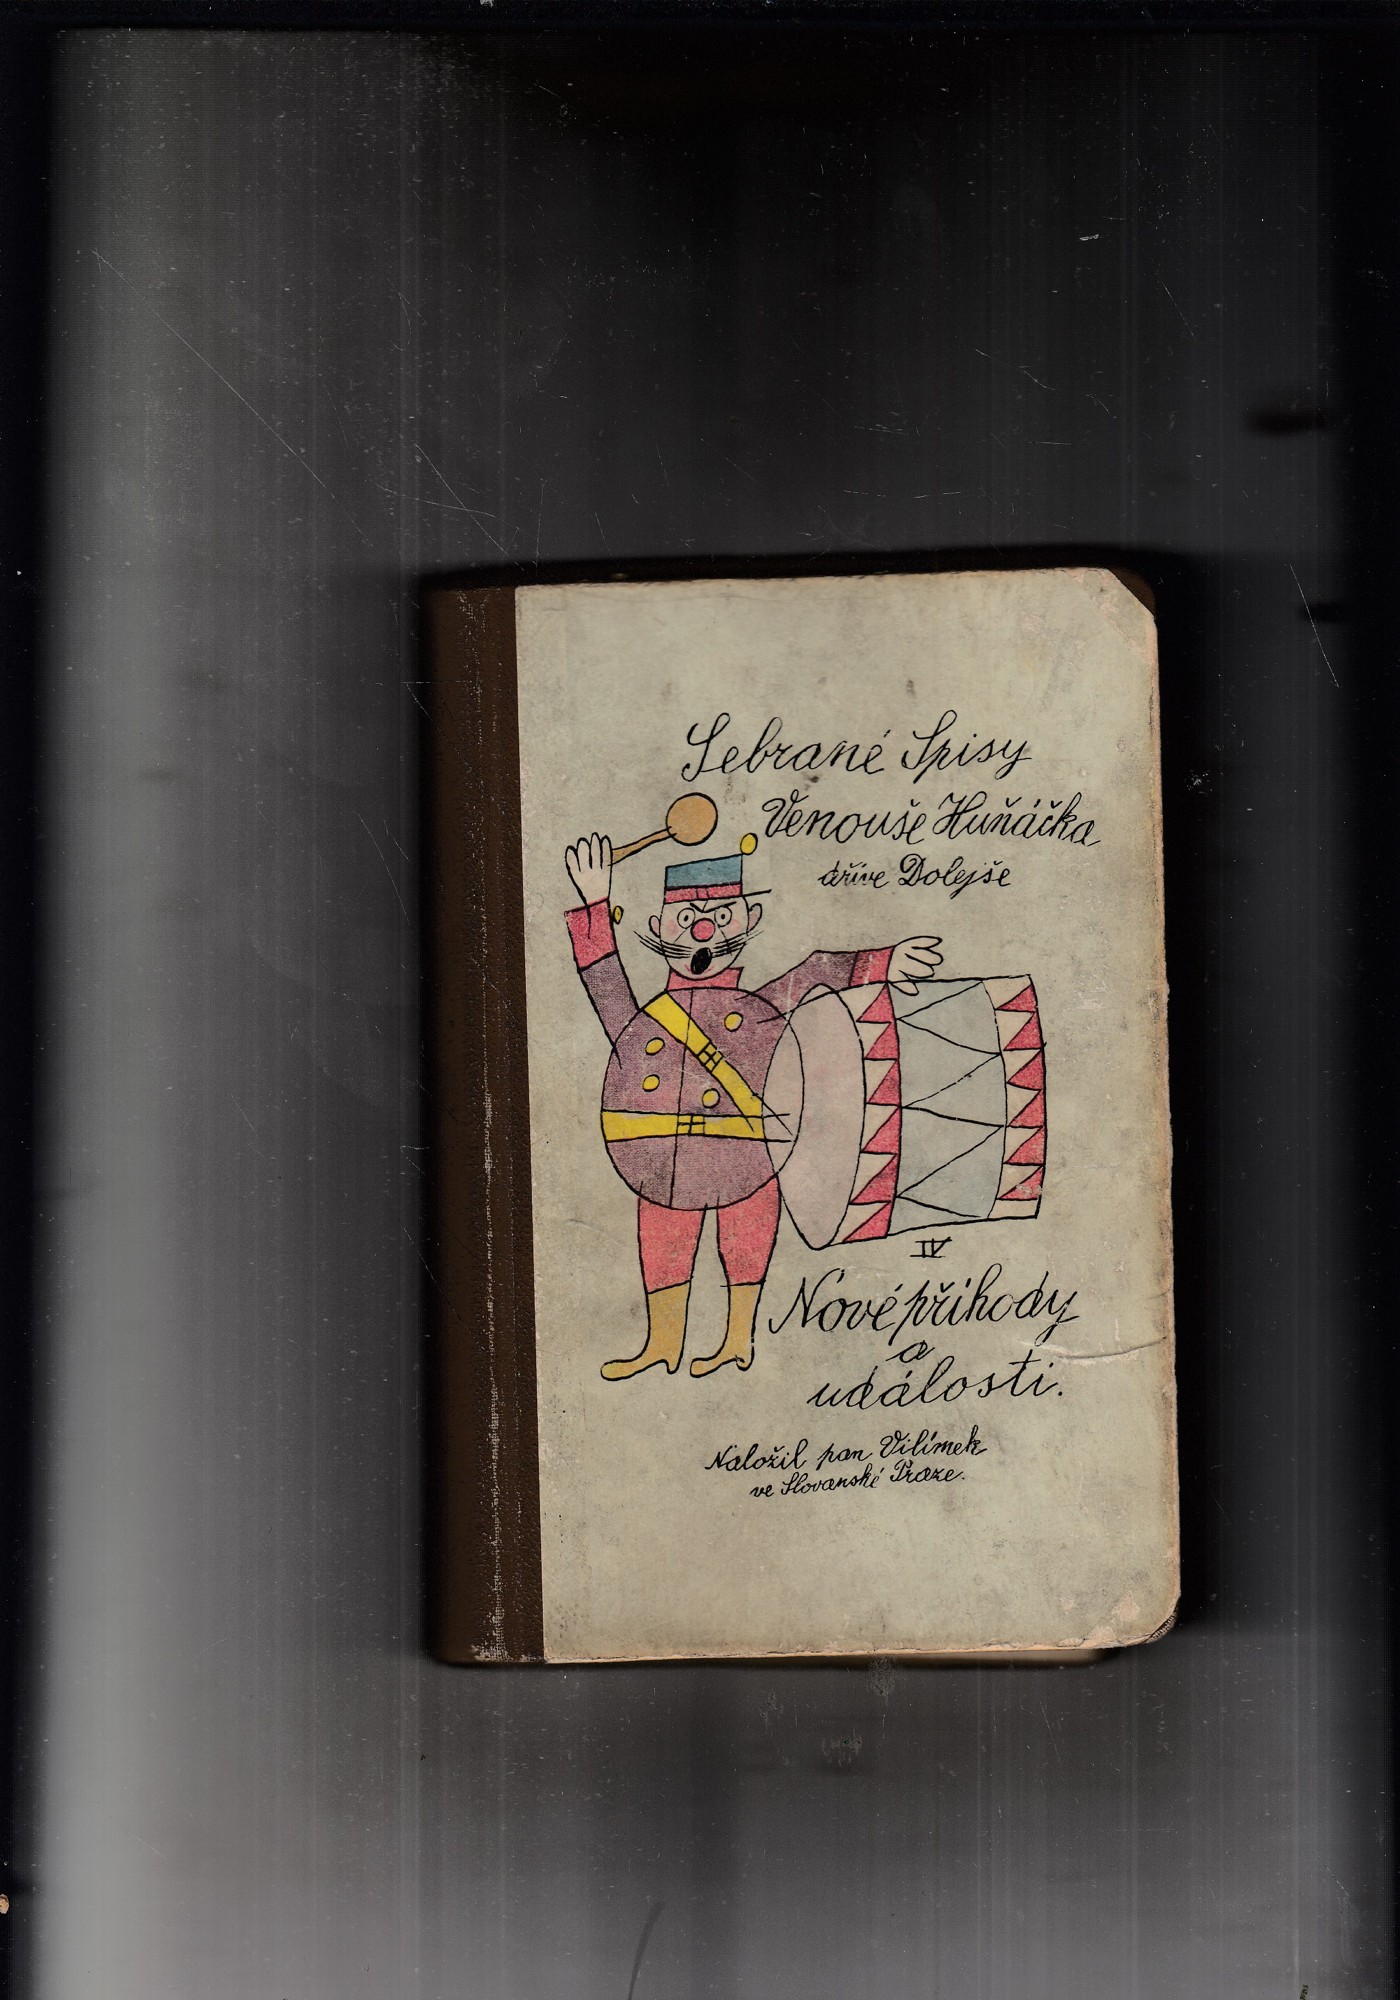 Sebrané Spisy
Venouše Huňáčka
dříve Dolejše
IV
Nové příhody
a
události.
Naložil pan Vilímek
ve Slovanské Praze.